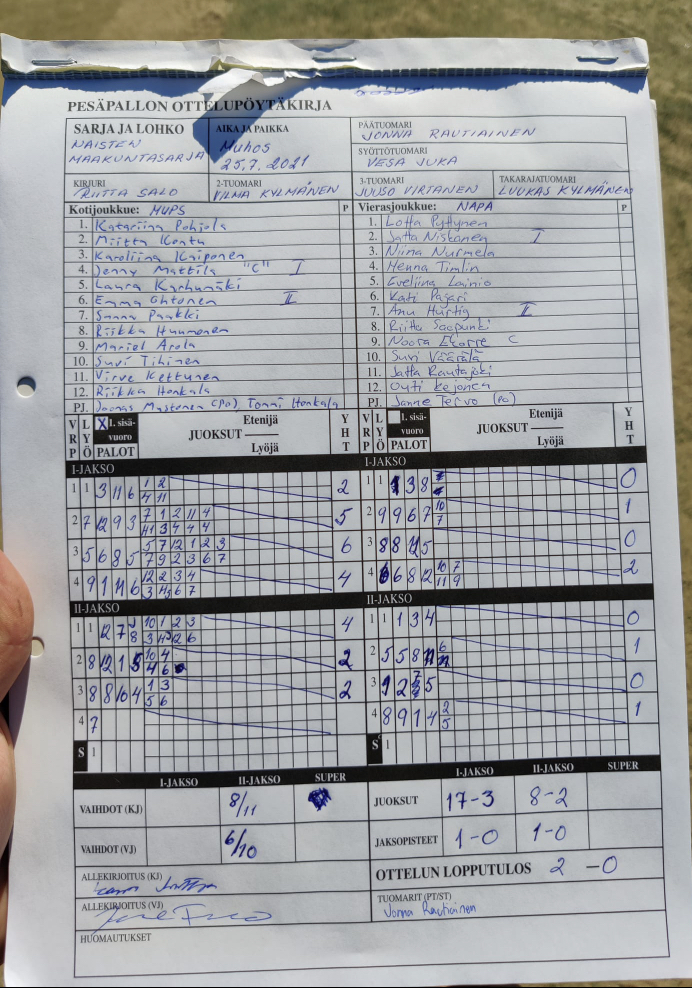 PESÄPALLON OTTELUPÖYTÄKIRJA
SARJA JA LOHKO
NAISTEN
MAAKUNTASARJA
AIKA JA PAIKKA
Muhos
25.7. 2021
PÄÄTUOMARI
JONNA RAUTIAINEN
SYÖTTÖTUOMARI
VESA JUKA
KIRJURI
RIITTA SALO
2-TUOMARI
VILMA KYLMÄNEN
3-TUOMARI
JUUSO VIRTANEN
TAKARAJATUOMARI
LUUKAS KYLMÄNEN
Kotijoukkue: MUPS P
1. Katariina Pohjola
2. Miitta Kontu
3. Karoliina Kaiponen
4. Jenny Mattila "C" I
5. Laura Karhumäki
6. Emma Ohtonen II
7. Sanna Paakki
8. Riikka Huumonen
9. Mariel Arola
10. Suvi Tihinen
11. Virve Kettunen
12. Riikka Honkala
PJ. Joonas Mustonen (PJ), Tommi Honkala
Vierasjoukkue: NAPA P
1. Lotta Pyttynen
2. Jatta Niskanen I
3. Niina Nurmela
4. Henna Timlin
5. Eveliina Lainio
6. Kati Pajari
7. Anu Hurtig II
8. Riitta Saapunki
9. Noora Ekorre C
10. Suvi Väärälä
11. Jatta Rautajoki
12. Outi Kejonen
PJ. Janne Tervo (PJ)
VRP LYÖ X 1. sisävuoro PALOT Etenijä JUOKSUT Lyöjä YHT
I-JAKSO
1 1 3 11 6 1 2 2
4 11
2 7 12 9 3 7 1 2 11 4 5
11 3 4 4 4
3 5 6 8 5 5 7 12 1 2 3 6
7 9 2 3 6 7
4 9 1 11 6 12 2 3 4 4
3 4 6 7
II-JAKSO
1 1 12 7 10 1 2 3 4
8 3 4 12 6
2 8 12 1 5 10 4 2
4 6
3 8 8 10 4 1 3 2
5 6
4 7
S 1
VRP LYÖ 1. sisävuoro PALOT Etenijä JUOKSUT Lyöjä YHT
I-JAKSO
1 1 1 3 8 0
2 9 9 6 7 10 1
7
3 8 8 5 0
4 6 6 8 12 10 7 2
11 9
II-JAKSO
1 1 1 3 4 0
2 5 5 8 11 6 1
3 9 2 5 0
4 8 9 1 4 2 1
5
S 1
I-JAKSO II-JAKSO SUPER
VAIHDOT (KJ) 8/11
VAIHDOT (VJ) 6/10
I-JAKSO II-JAKSO SUPER
JUOKSUT 17-3 8-2
JAKSOPISTEET 1-0 1-0
ALLEKIRJOITUS (KJ)
ALLEKIRJOITUS (VJ)
OTTELUN LOPPUTULOS 2 -0
TUOMARIT (PT/ST)
Jonna Rautiainen
HUOMAUTUKSET